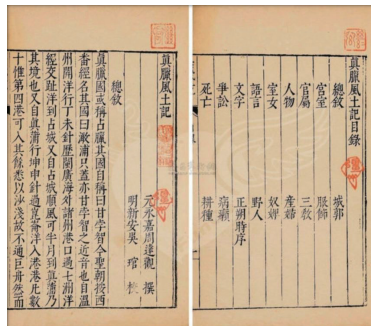 真臘風土記目錄
總敘 城郭
宮室 服飾
官屬 三教
人物 產婦
室女 奴婢
語言 野人
文字 正朔時序
爭訟 病癩
死亡 耕種
真臘風土記
元永嘉周達觀 撰
明新安吳琯 校
總敘
真臘國或稱占臘其國自稱曰甘孛智今聖朝按西
番經名其國曰澉浦只蓋亦甘孛智之近音也自溫
州開洋行丁未針歷閩廣海外諸州港口過七洲洋
經交趾洋到占城又自占城順風可半月到真蒲乃
其境也又自真蒲行坤申針過崑崙洋入港港凡數
十惟第四港可入其餘悉以沙淺故不通巨舟然而